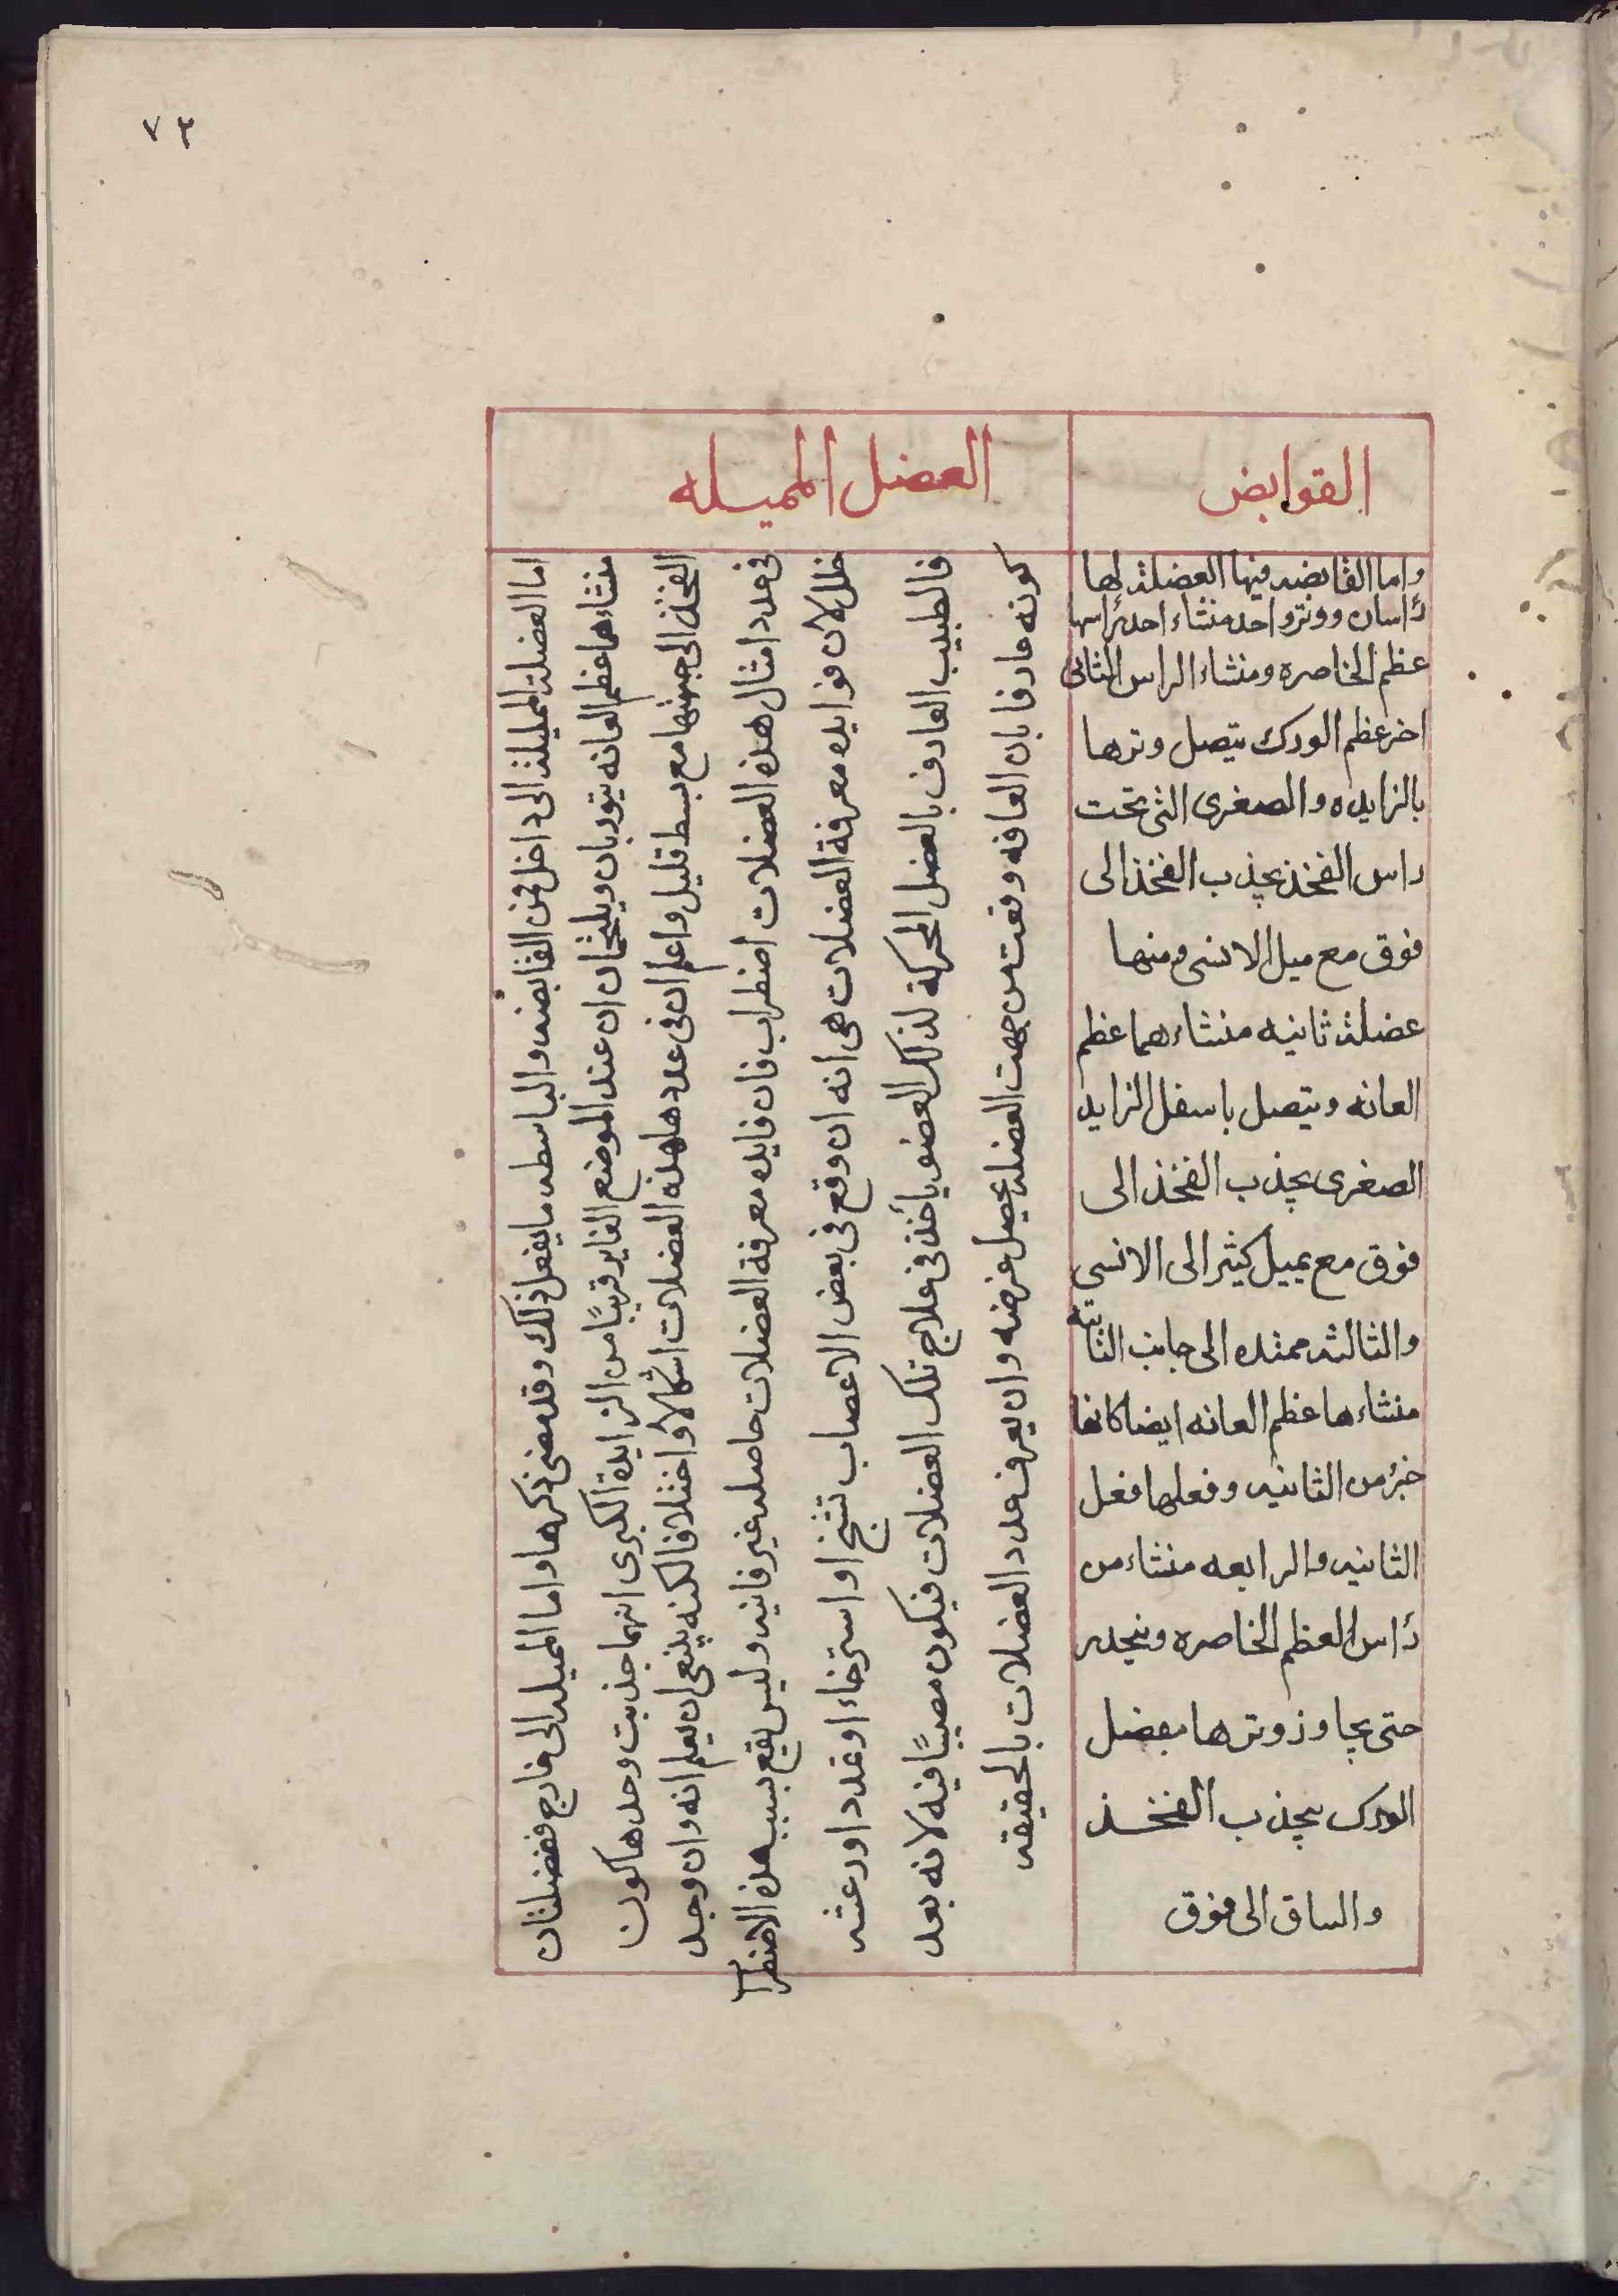 ٧٣
القوابض
العضل المميله
واما القابضه فيها العضلة لها
رأسان ووترواحد منشاء احد راسها
عظم الخاصره ومنشاء الراس الثانى
اخر عظم الورك يتصل وترها
بالزايده والصغرى التى تحت
راس الفخذ يجذب الفخذ الى
فوق مع ميل الانسى ومنها
عضلة ثانيه منشاءهما عظم
العانه ويتصل باسفل الزايد
الصغرى يجذب الفخذ الى
فوق مع يميل كثير الى الانسى
والثالثه ممتده الى جانب الثانيه
منشاءها عظم العانه ايضا كانها
جزء من الثانيه وفعلها فعل
الثانيه والرابعه منشاءمن
رأس العظم الخاصره وينجدر
حتى يجاوز وترها بفضل
الورك يجذب الفخذ
والساق الى فوق
اما العضلة المميلة الى داخل فمن القابضه والباسطه ما يفعل ذلك وقد مضى ذكرهما واما المميله الى خارج فعضلتان
منشاءهما عظم العانه يتوربان ويلتحمان ان عند الموضع الغاير قريبًا من الزايدة الكبرى انهما جذبت وحدها كون
الفخذ الى جهتها مع بسط قليل واعلم ان فى عدد هذه العضلات اشكالا واختلافا لكنه ينبغى ان يعلم انه وان وجد
فى عدد امثال هذه العضلات اضطراب فان فايده معرفة العضلات حاصله غير فانيه وليس يقع بسبب هذه الاضطراب
خلل لان فوايده معرفة العضلات هى انه ان وقع فى بعض الاعصاب تشنج او استرخاء او غدد اورعشه
فالطبيب العارف بالعضل المحركة لذلك العضو يأخذ فى علاج تلك العضلات فيكون مصيبًا فيه لانه بعد
كونه عارفا بان العافه وقعت من جهت العضله يحصل غرضه وان يعرف عدد العضلات بالحقيقه